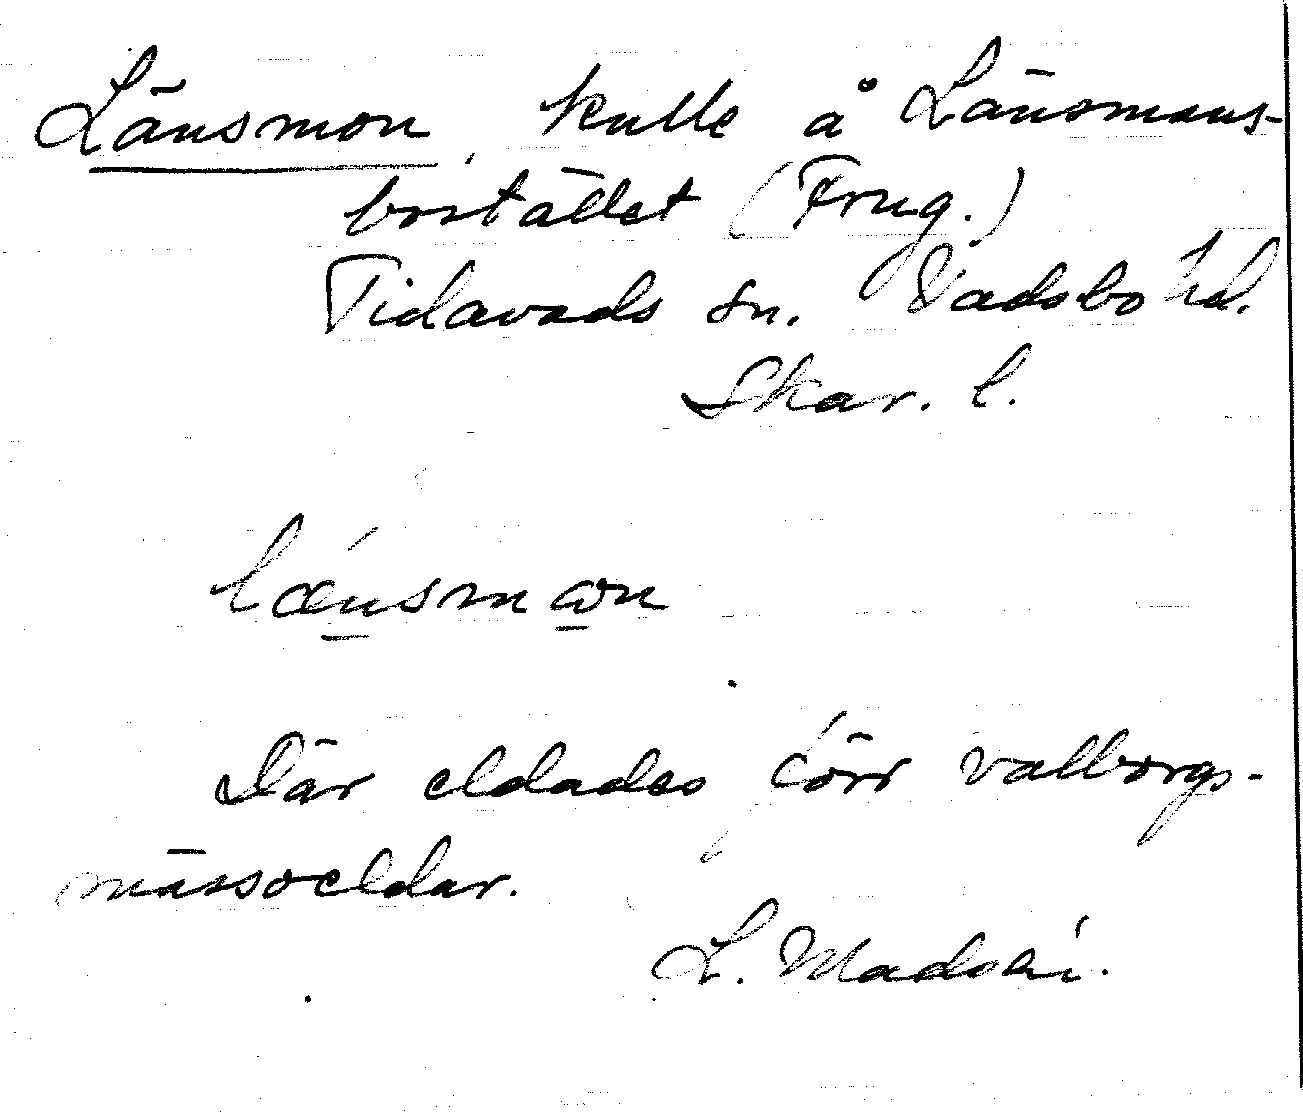 Länsmon, kulle å Länsmans-
bostället (Frug.)
Tidavads sn. Vadsbo hd.
Skar. l.
lǽnsmɷn
Där eldades förr valborgs-
mässoeldar.
L. Madsén.